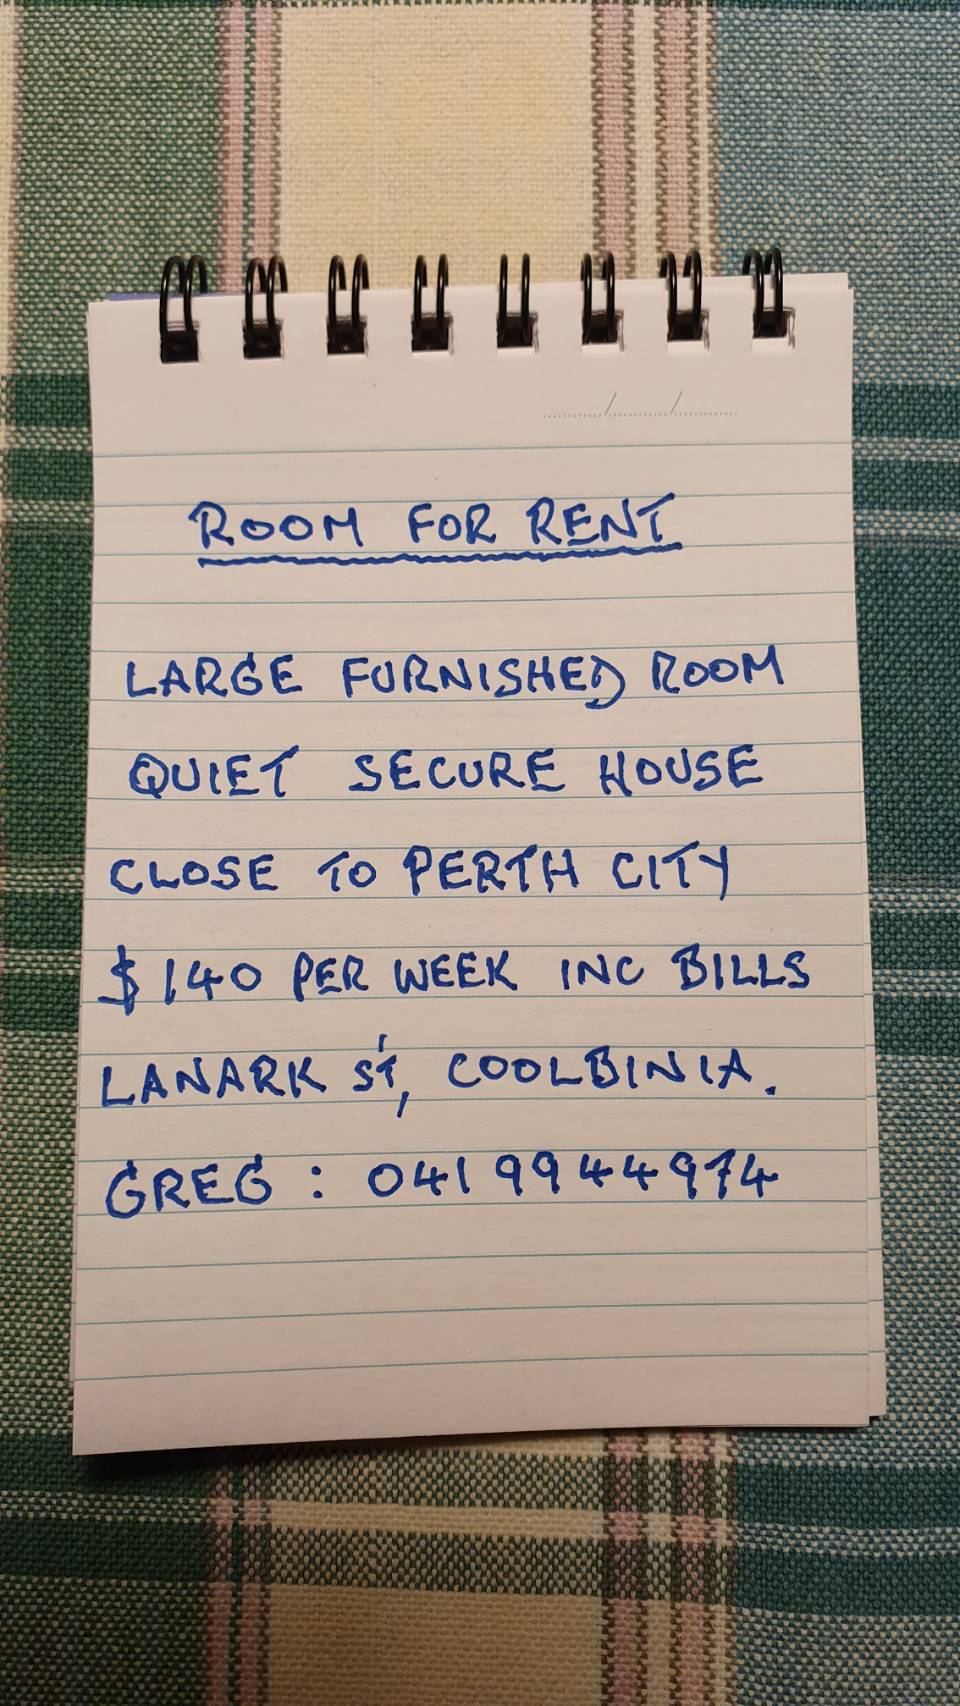 ROOM FOR RENT
LARGE FURNISHED ROOM
QUIET SECURE HOUSE
CLOSE TO PERTH CITY
$140 PER WEEK INC BILLS
LANARK ST, COOLBINIA.
GREG : 0419944974